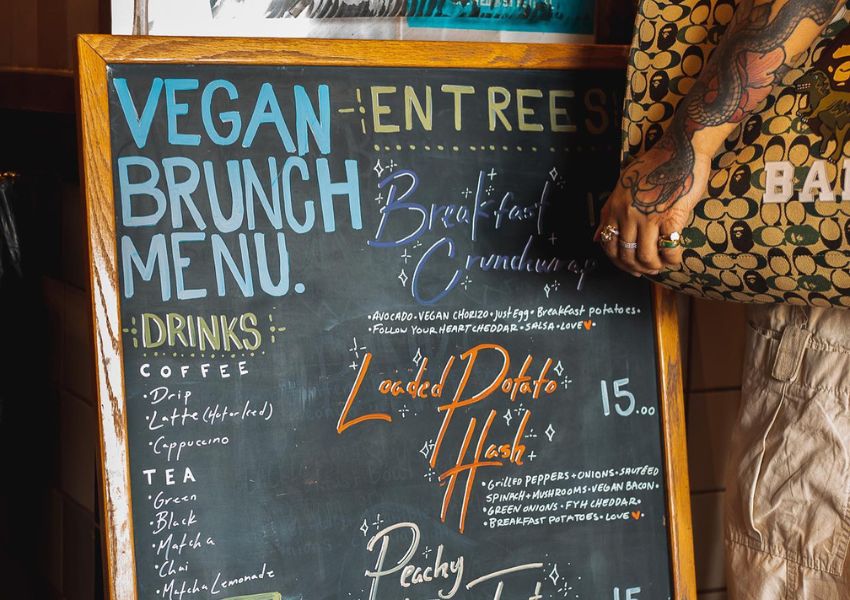 VEGAN
BRUNCH
MENU.
DRINKS
COFFEE
• Drip
• Latte (Hot or Iced)
• Cappuccino
TEA
• Green
• Black
• Matcha
• Chai
• Matcha Lemonade
ENTREES
Breakfast
Crunchwrap
• AVOCADO • VEGAN CHORIZO • just Egg • Breakfast potatoes •
• FOLLOW YOUR HEART CHEDDAR • SALSA • LOVE
Loaded Potato
Hash
15.00
• GRILLED PEPPERS + ONIONS • SAUTÉED
SPINACH + MUSHROOMS • VEGAN BACON •
• GREEN ONIONS • FYH CHEDDAR •
• BREAKFAST POTATOES • LOVE
Peachy
15
BA